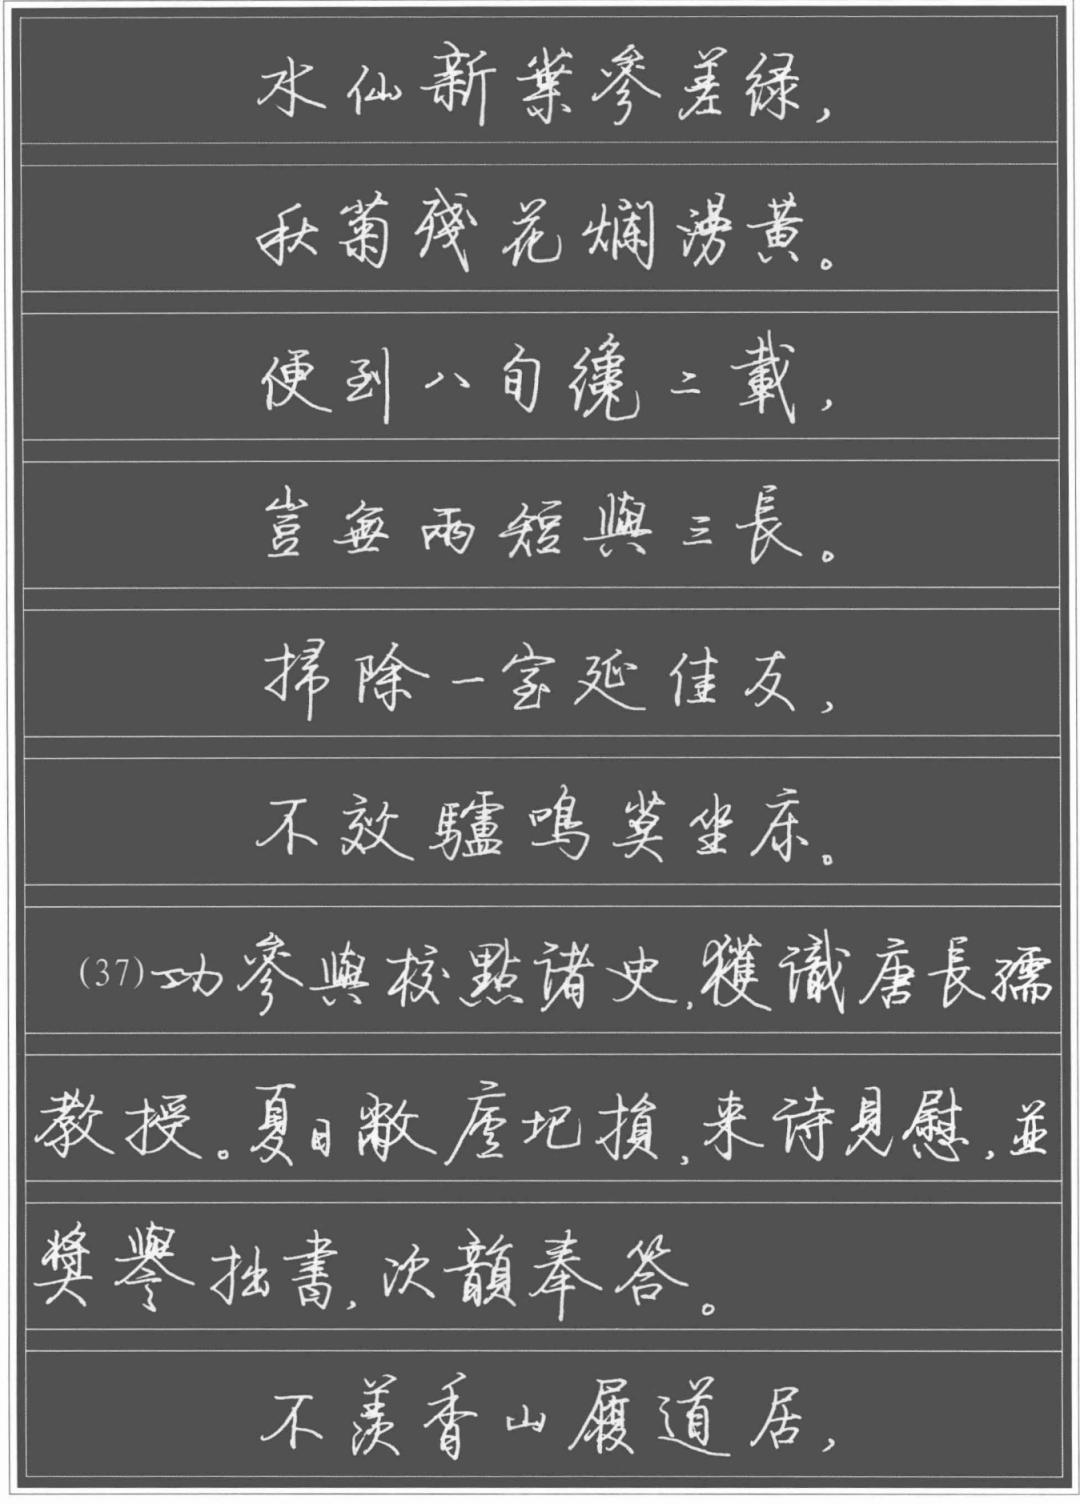 水仙新葉參差緑，
秋菊殘花爛漫黄。
便到八旬纔二載，
豈無兩短與三長。
掃除一室延佳友，
不效驢鳴莫坐床。
(37)功參與校點諸史，獲識唐長孺
教授。夏日敝廬圮損，来詩見慰，並
獎譽拙書，次韻奉答。
不羡香山履道居，